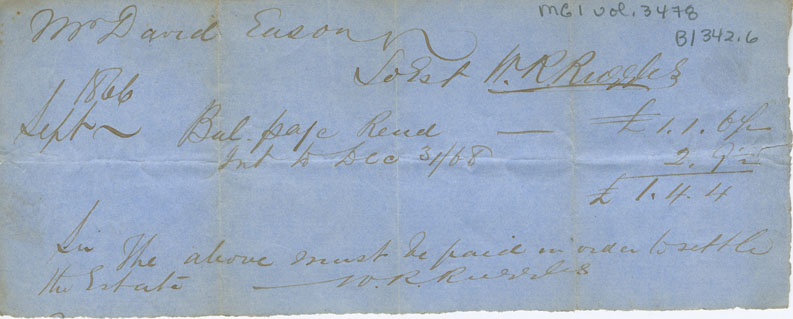 MG1 vol. 3478
B1342.6
Mr David Eason
To Est W. R. Ruggles
1866
Sept Bal. pr a/c Rend — £ 1.1.6½
Int to Dec 31/68 2.9½
£ 1.4.4
Sir The above must be paid in order to settle
the Estate — W. R. Ruggles